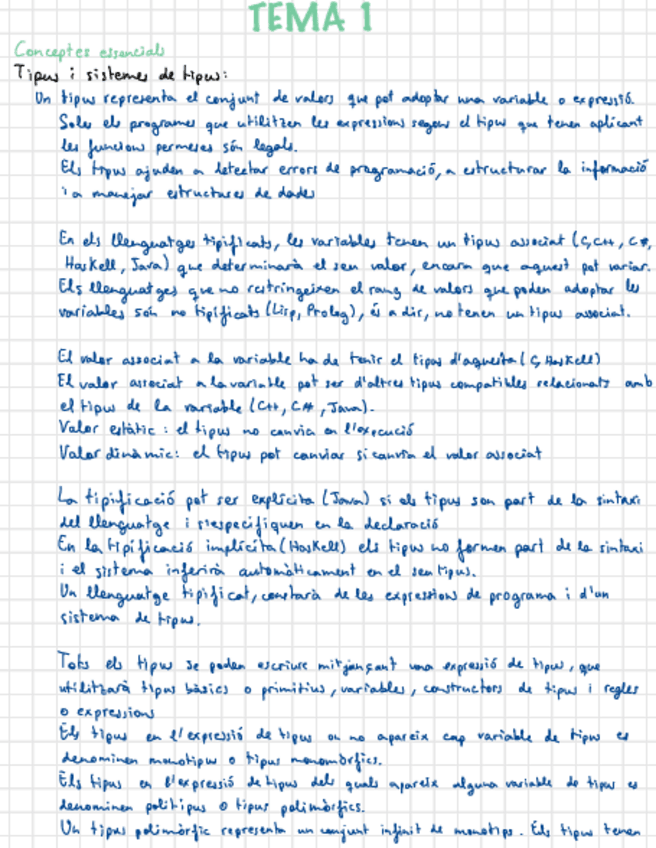 TEMA 1
Conceptes essencials
Tipus i sistemes de tipus:
Un tipus representa el conjunt de valors que pot adoptar una variable o expressió.
Soles els programes que utilitzen les expressions segons el tipus que tenen aplicant
les funcions permeses són legals.
Els tipus ajuden a detectar errors de programació, a estructurar la informació
i a manejar estructures de dades
En els llenguatges tipificats, les variables tenen un tipus associat (C, C++, C#,
Haskell, Java) que determinarà el seu valor, encara que aquest pot variar.
Els llenguatges que no restringeixen el rang de valors que poden adoptar les
variables són no tipificats (Lisp, Prolog), és a dir, no tenen un tipus associat.
El valor associat a la variable ha de tenir el tipus d'aquesta (C, Haskell)
El valor associat a la variable pot ser d'altres tipus compatibles relacionats amb
el tipus de la variable (C++, C#, Java).
Valor estàtic: el tipus no canvia en l'execució
Valor dinàmic: el tipus pot canviar si canvia el valor associat
La tipificació pot ser explícita (Java) si els tipus son part de la sintaxi
del llenguatge i s'especifiquen en la declaració
En la tipificació implícita (Haskell) els tipus no formen part de la sintaxi
i el sistema inferirà automàticament en el seu tipus.
Un llenguatge tipificat, constarà de les expressions de programa i d'un
sistema de tipus.
Tots els tipus se poden escriure mitjançant una expressió de tipus, que
utilitzarà tipus bàsics o primitius, variables, constructors de tipus i regles
o expressions
Els tipus en l'expressió de tipus on no apareix cap variable de tipus es
denominen monotipus o tipus monomòrfics.
Els tipus en l'expressió de tipus dels quals apareix alguna variable de tipus es
denominen politipus o tipus polimòrfics.
Un tipus polimòrfic representa un conjunt infinit de monotips. Els tipus tenen